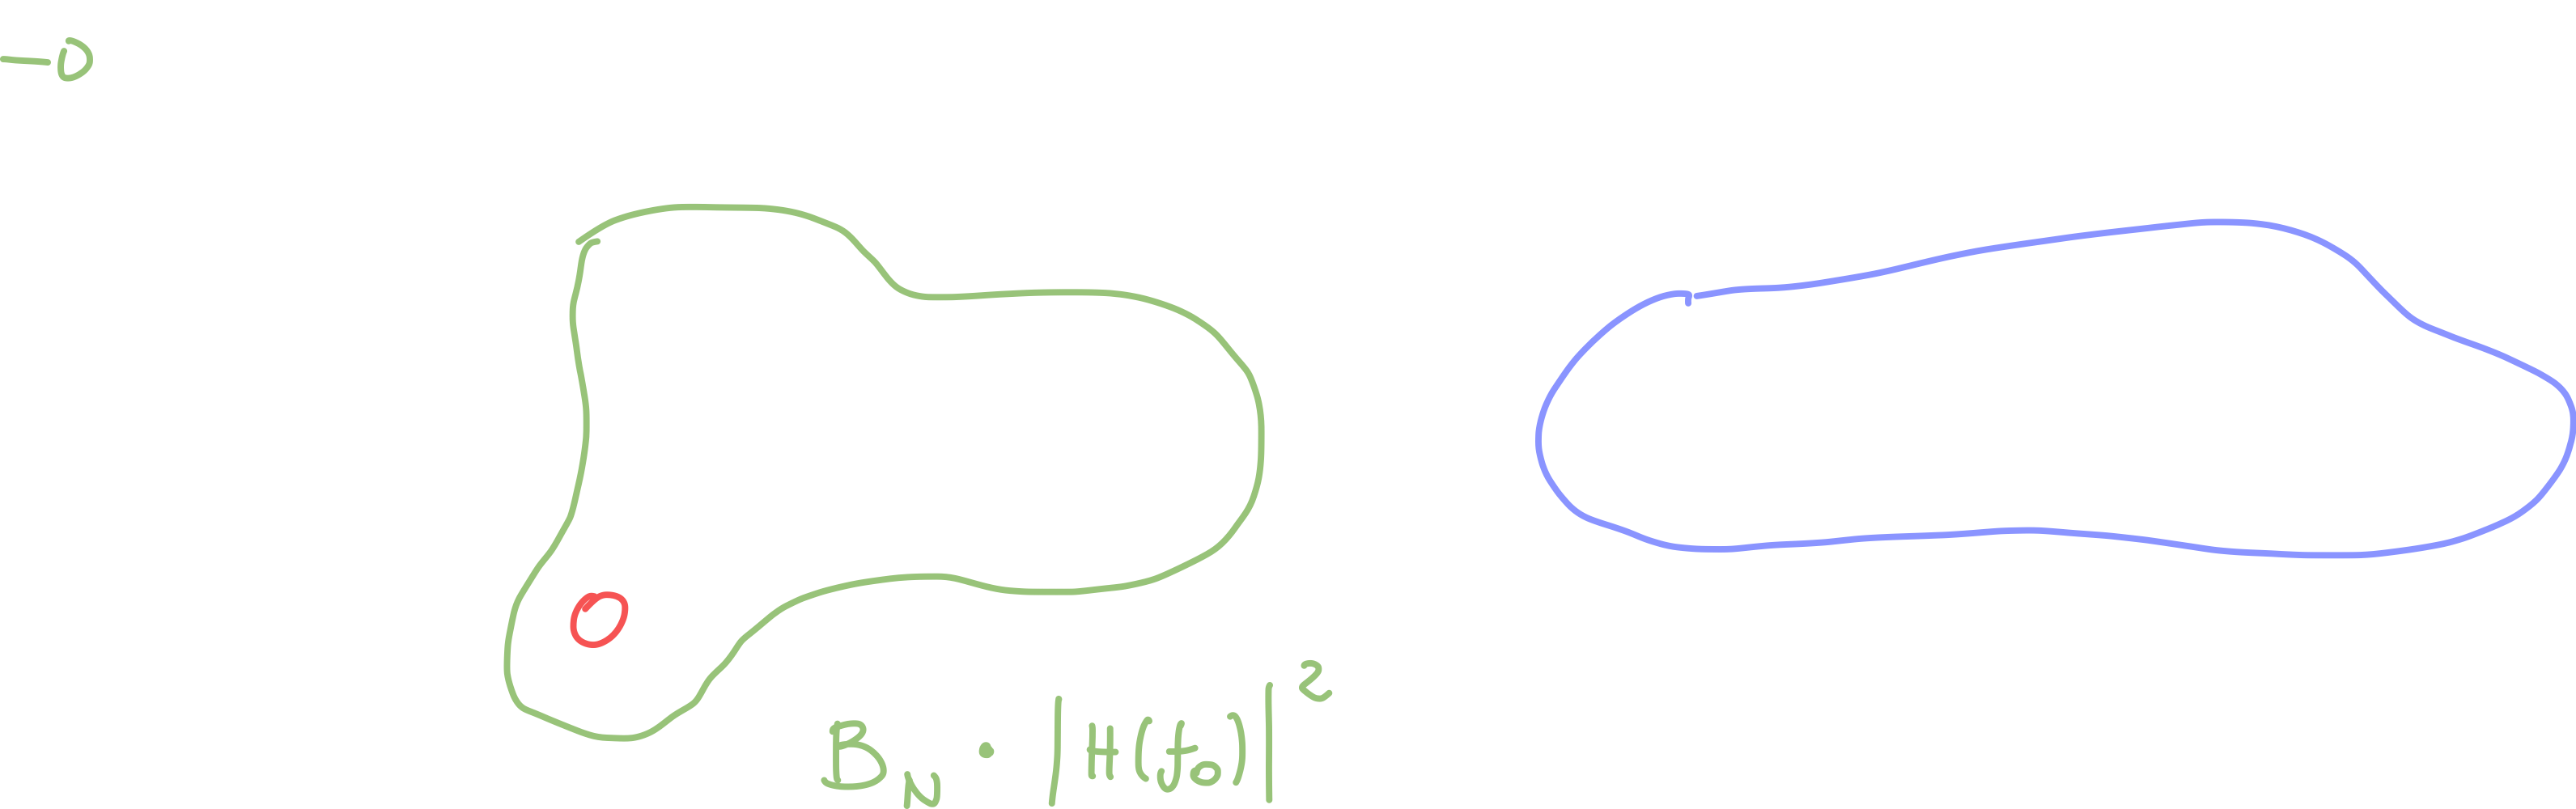 -0
B_N · |H(f_0)|^2